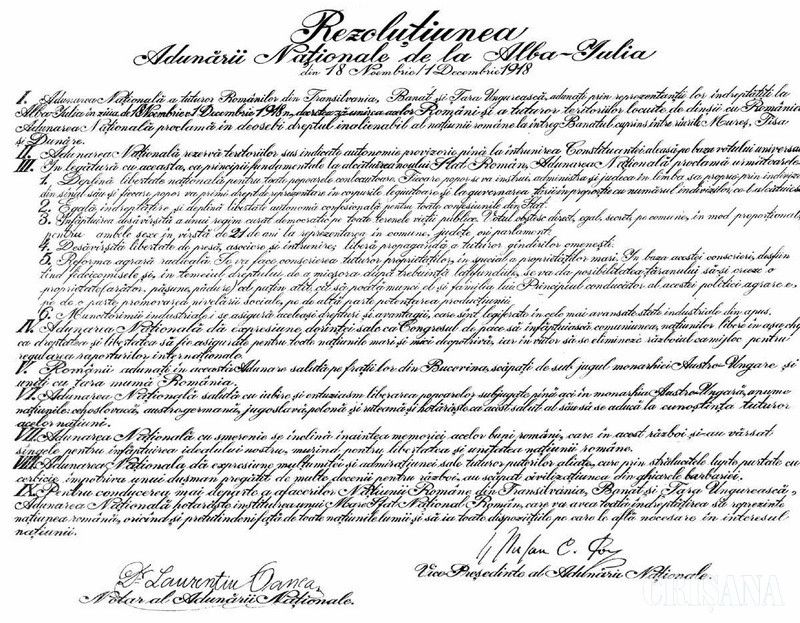 Rezoluțiunea
Adunării Naționale de la Alba-Iulia
din 18 Noembrie/1 Decembrie 1918
I. Adunarea Națională a tuturor Românilor din Transilvania, Banat și Țara Ungurească, adunați prin reprezentanții lor îndreptățiți la
Alba-Iulia în ziua de 18 Noembrie/1 Decembrie 1918, decretează unirea acelor Români și a tuturor teritoriilor locuite de dînșii cu România.
Adunarea Națională proclamă în deosebi dreptul inalienabil al națiunii române la întreg Banatul cuprins între rîurile Mureș, Tisa
și Dunăre.
II. Adunarea Națională rezervă teritoriilor sus indicate autonomie provizorie pînă la întrunirea Constituantei aleasă pe baza votului universal
III. În legătură cu aceasta, ca principii fundamentale la alcătuirea noului Stat Român, Adunarea Națională proclamă următoarele:
1. Deplină libertate națională pentru toate popoarele conlocuitoare. Fiecare popor se va instrui, administra și judeca în limba sa proprie prin indivizi
din sînul său și fiecare popor va primi drept de reprezentare în corpurile legiuitoare și la guvernarea țării în proporție cu numărul indivizilor ce-l alcătuiesc
2. Egală îndreptățire și deplină libertate autonomă confesională pentru toate confesiunile din Stat.
3. Înfăptuirea desăvîrșită a unui regim curat democratic pe toate terenele vieții publice. Votul obștesc direct, egal, secret, pe comune, în mod proporțional,
pentru ambele sexe în vîrstă de 21 de ani la reprezentarea în comune, județe ori parlament.
4. Desăvîrșită libertate de presă, asociere și întrunire; liberă propagandă a tuturor gîndirilor omenești.
5. Reforma agrară radicală. Se va face conscrierea tuturor proprietăților, în special a proprietăților mari. În baza acestei conscrieri, desfiin
țînd fideicomisele și, în temeiul dreptului de a micșora după trebuință latifundiile, se va da posibilitatea țăranului să-și creeze o
proprietate (arător, pășune, pădure) cel puțin atît, cît să poată munci el și familia lui. Principiul conducător al acestei politici agrare e
pe de o parte promovarea nivelării sociale, pe de altă parte potențarea producțiunii.
6. Muncitorimii industriale i se asigură aceleași drepturi și avantagii, care sînt legiferate în cele mai avansate state industriale din apus.
IV. Adunarea Națională dă expresiune dorinței sale ca Congresul de pace să înfăptuiască comuniunea națiunilor libere în așa chip
ca dreptatea și libertatea să fie asigurate pentru toate națiunile mari și mici deopotrivă, iar în viitor să se elimineze războiul ca mijloc pentru
regularea raporturilor internaționale.
V. Românii adunați în această Adunare salută pe frații lor din Bucovina, scăpați de sub jugul monarhiei Austro-Ungare și
uniți cu țara mumă România.
VI. Adunarea Națională salută cu iubire și entuziasm liberarea popoarelor subjugate pînă aci în monarhia Austro-Ungară, anume
națiunile: cehoslovacă, austro-germană, jugoslavă, polonă și ruteană și hotărăște ca acest salut al său să se aducă la cunoștința tuturor
acelor națiuni.
VII. Adunarea Națională cu smerenie se închină înaintea memoriei acelor bupi români, care în acest război și-au vărsat
sîngele pentru înfăptuirea idealului nostru, murind pentru libertatea și unitatea națiunii române.
VIII. Adunarea Națională dă expresiune mulțumitei și admirațiunei sale tuturor puterilor aliate, care prin strălucitele lupte purtate cu
cerbicie împotriva unui dușman pregătit de multe decenii pentru război, au scăpat civilizațiunea din ghiarele barbariei.
IX. Pentru conducerea mai departe a afacerilor Națiunii Române din Transilvania, Banat și Țara Ungurească,
Adunarea Națională hotărăște instituirea unui Mare Sfat Național Român, care va avea toată îndreptățirea să reprezinte
națiunea română, oricînd și pretutindeni față de toate națiunile lumii și să ia toate dispozițiile pe care le află necesare în interesul
națiunii.
Dr. Laurențiu Oanea
Notar al Adunării Naționale.
Ștefan C. Pop
Vice-Președinte al Adunării Naționale.
CRIȘANA